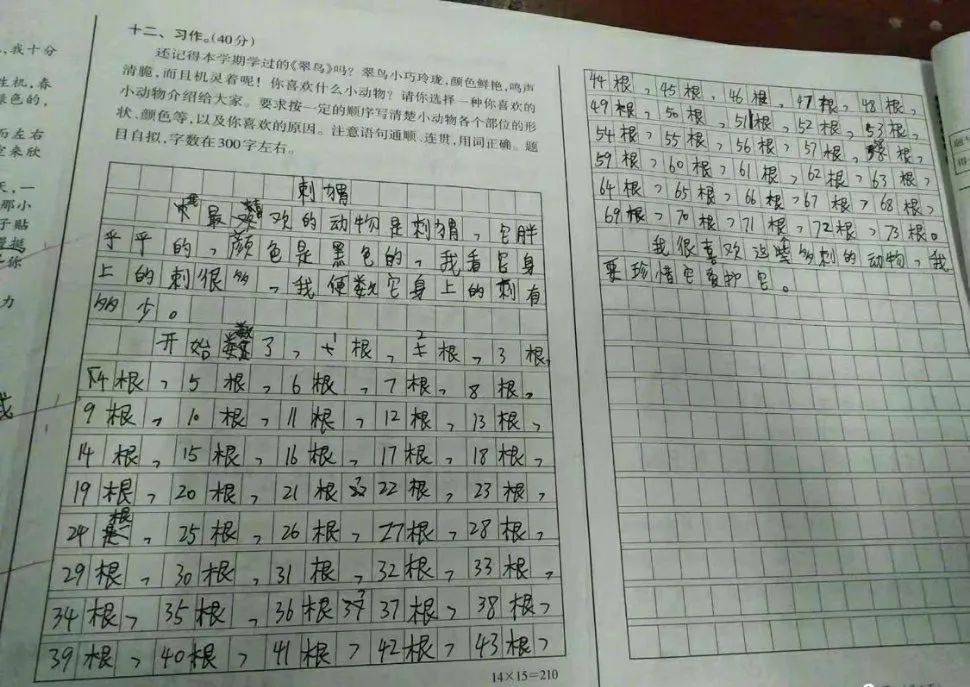 ，我十分
生机，春
绿色的，
而左右
天，一
那小
子贴
是你
力
十二、习作。(40分)
还记得本学期学过的《翠鸟》吗？翠鸟小巧玲珑，颜色鲜艳，鸣声
清脆，而且机灵着呢！你喜欢什么小动物？请你选择一种你喜欢的
小动物介绍给大家。要求按一定的顺序写清楚小动物各个部位的形
状、颜色等，以及你喜欢的原因。注意语句通顺、连贯，用词正确。题
目自拟，字数在300字左右。
刺猬
我最喜欢的动物是刺猬，它胖
乎乎的，颜色是黑色的，我看它身
上的刺很多，我便数它身上的刺有
多少。
开始数了，1根，2根，3根，
4根，5根，6根，7根，8根，
9根，10根，11根，12根，13根，
14根，15根，16根，17根，18根，
19根，20根，21根，22根，23根，
24根，25根，26根，27根，28根，
29根，30根，31根，32根，33根，
34根，35根，36根，37根，38根，
39根，40根，41根，42根，43根，
14×15=210
44根，45根，46根，47根，48根，
49根，50根，51根，52根，53根，
54根，55根，56根，57根，根，
59根，60根，61根，62根，63根，
64根，65根，66根，67根，68根，
69根，70根，71根，72根，73根。
我很喜欢这些多刺的动物，我
要珍惜它爱护它。